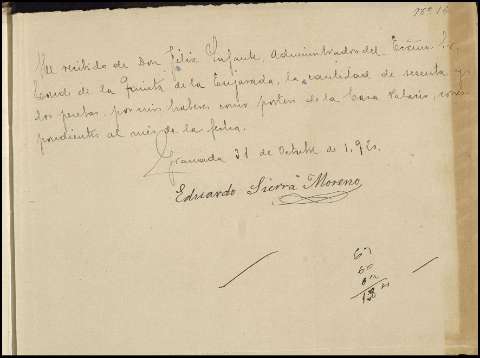 Nº 16
He recibido de Don Felix Infante, Administrador del Excmo. Sr.
Conde de la Quinta de la Enjarada, la cantidad de sesenta y
dos pesetas, por mis haberes como portero de la Casa Palacio, corres
pondientes al mes de la fecha.
Granada 31 de Octubre de 1.920.
Eduardo Sierra Moreno